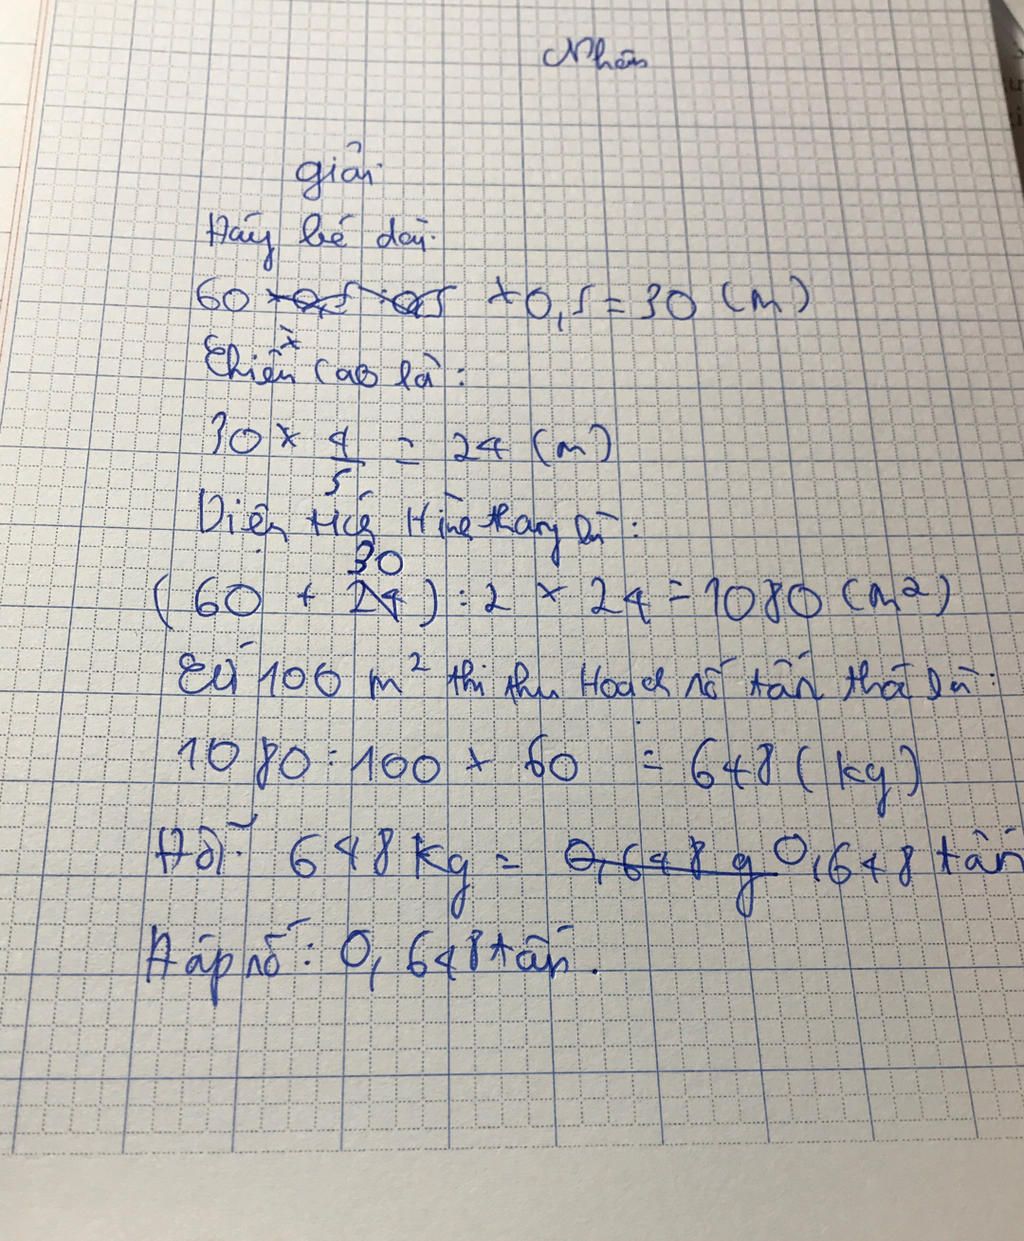 Nhân
giải
Đáy bé dài:
60 × 0,5 = 30 (m)
Chiều cao là:
30 × 4/5 = 24 (m)
Diện tích Hình thang là:
30
(60 + 24) : 2 × 24 = 1080 (m2)
Cứ 100 m² thì thu Hoạch số tấn thó là:
1080 : 100 × 60 = 648 (kg)
Đổi: 648 kg = 0,648 g 0,648 tấn
Đáp số: 0,648 tấn.